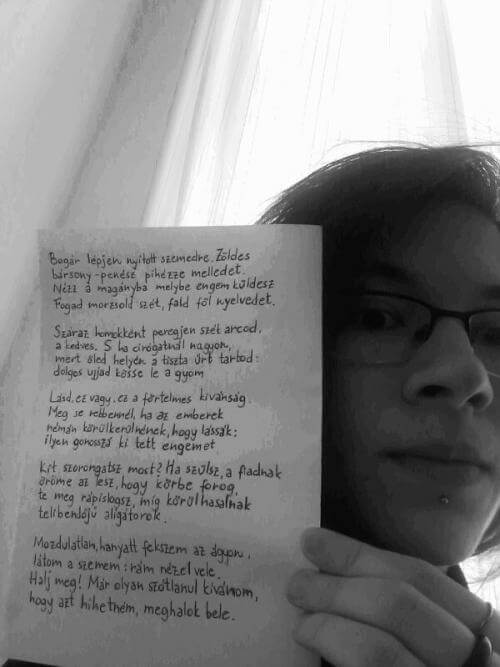 Bogár lépjen nyitott szemedre. Zöldes
bársony-penész pihézze melledet.
Nézz a magányba melybe engem küldesz
Fogad morzsold szét, fald föl nyelvedet.
Száraz homokként peregjen szét arcod,
a kedves. S ha cirógatnál nagyon,
mert öled helyén a tiszta űrt tartod:
dolgos ujjad kösse le a gyom
Lásd, ez vagy, ez a förtelmes kivánság.
Meg se rebbennél, ha az emberek
némán körülkerülnének, hogy lássák:
ilyen gonosszá ki tett engemet.
Kit szorongatsz most? Ha szülsz, a fiadnak
öröme az lesz, hogy körbe forog,
te meg rápislogsz, míg körülhasalnak
telibendőjű aligátorok.
Mozdulatlan, hanyatt fekszem az ágyon,
látom a szemem: rám nézel vele.
Halj meg! Már olyan szótlanul kívánom,
hogy azt hihetném, meghalok bele.